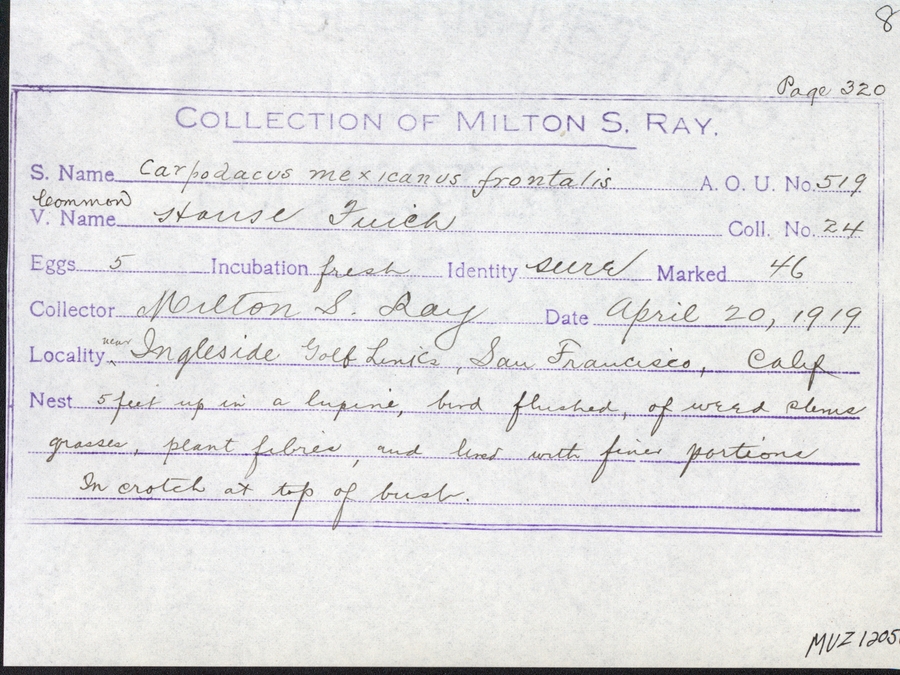 8
Page 320
COLLECTION OF MILTON S. RAY.
S. Name Carpodacus mexicanus frontalis A. O. U. No. 519
Common
V. Name House Finch Coll. No. 24
Eggs 5 Incubation fresh Identity sure Marked 46
Collector Milton S. Ray Date April 20, 1919
Locality near Ingleside Golf Links, San Francisco, Calif
Nest 5 feet up in a lupine, bird flushed, of weed stems
grasses, plant fibres, and lined with finer portions
In crotch at top of bush.
MVZ 1205